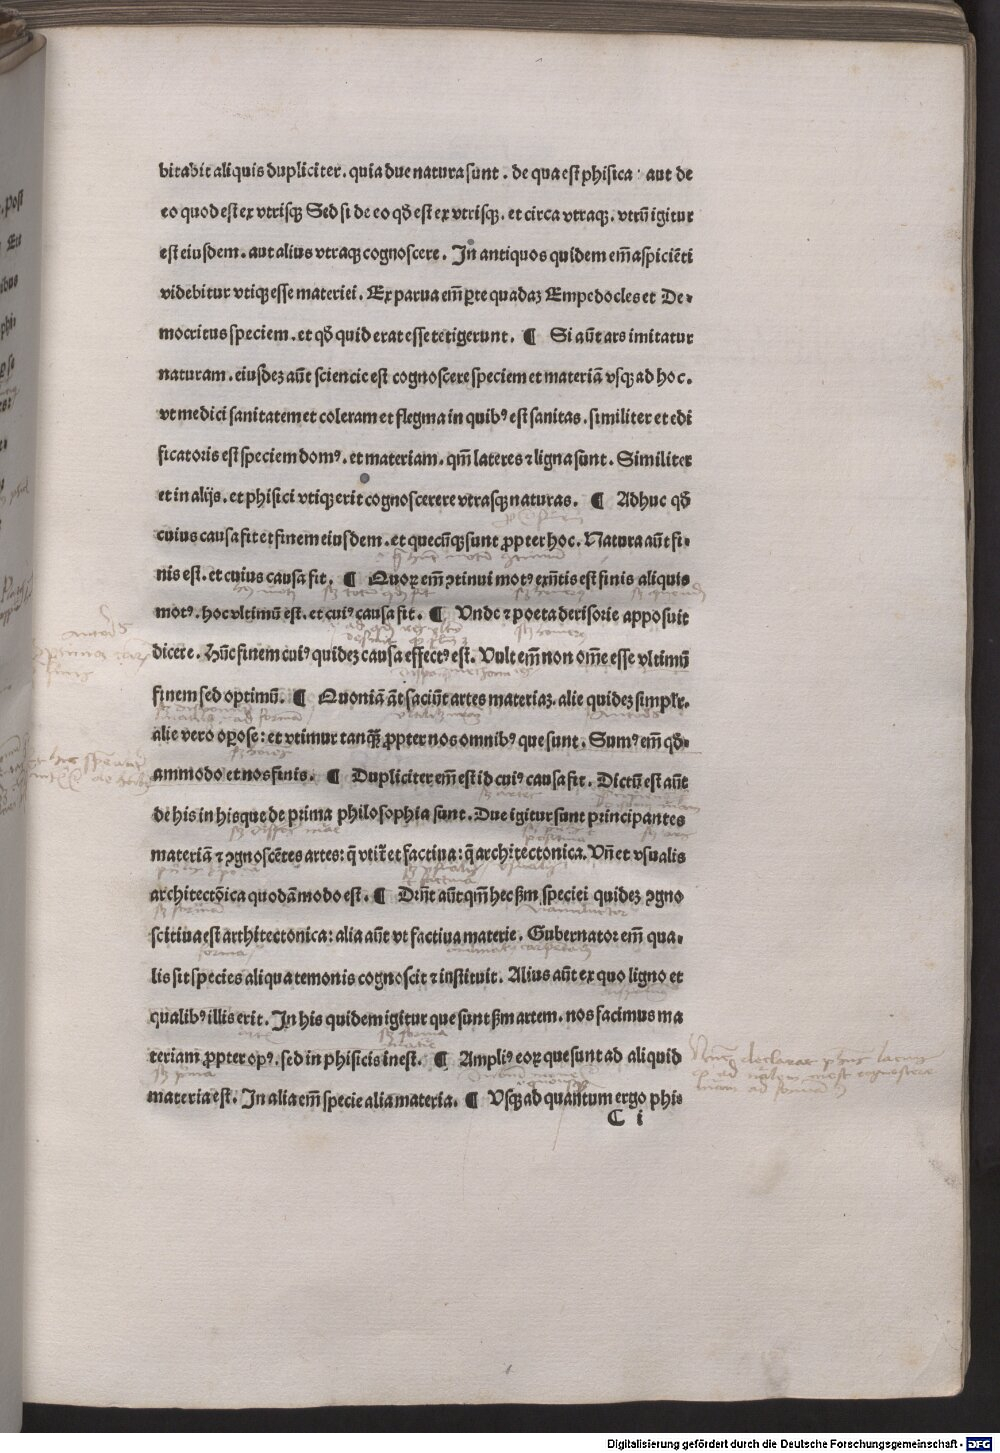 bitabit aliquis dupliciter. quia due natura sunt. de qua est phisica: aut de
eo quod est ex vtrisqꝫ Sed si de eo qđ est ex vtrisqꝫ. et circa vtraqꝫ. vtrū igitur
est eiusdem. aut alius vtraqꝫ cognoscere. In antiquos quidem em̄ aspiciēti
videbitur vtiqꝫ esse materiei. Ex parua em̄ ꝑte quadaꝫ Empedocles et De-
mocritus speciem. et qđ quid erat esse tetigerunt. ¶ Si aūt ars imitatur
naturam. eiusdeꝫ aūt sciencie est cognoscere speciem et materiā vsqꝫ ad hoc.
vt medici sanitatem et coleram et flegma in quibꝰ est sanitas. similiter et edi
ficatoris est speciem domꝰ. et materiam. qm̄ lateres ⁊ ligna sunt. Similiter
et in alijs. et phisici vtiqꝫ erit cognoscerere vtrasqꝫ naturas. ¶ Adhuc qđ
cuius causa fit et finem eiusdem. et quecūqꝫ sunt ꝓpter hoc. Natura aūt fi-
nis est. et cuius causa fit. ¶ Quoꝝ em̄ ꝯtinui motꝰ exn̄tis est finis aliquis
motꝰ. hoc vltimū est. et cuiꝰ causa fit. ¶ Vnde ⁊ poeta derisorie apposuit
dicere. Hūc finem cuiꝰ quideꝫ causa effectꝰ est. Vult em̄ non om̄e esse vltimū
finem sed optimū. ¶ Quoniā āt faciūt artes materiaꝫ. alie quideꝫ simplr̄.
alie vero oꝑose: et vtimur tanqꝫ̄ ꝓpter nos omnibꝰ que sunt. Sumꝰ em̄ qđ-
ammodo et nos finis. ¶ Dupliciter em̄ est id cuiꝰ causa fit. Dictū est aūt
de his in hisque de prima philosophia sunt. Due igitur sunt principantes
materiā ⁊ ꝯgnoscētes artes: q̄ vtit̄ et factiua: q̄ architectonica. Vn̄ et vsualis
architectōica quodāmodo est. ¶ Drn̄t aūt qm̄ hec ẜm speciei quideꝫ ꝯgno
scitiua est arthitectonica: alia aūt vt factiua materie. Gubernator em̄ qua-
lis sit species aliqua temonis cognoscit ⁊ instituit. Alius aūt ex quo ligno et
qualibꝰ illis erit. In his quidem igitur que sunt ẜm artem. nos facimus ma
teriam ꝓpter opꝰ. sed in phisicis inest. ¶ Ampliꝰ eoꝝ que sunt ad aliquid
materia est. In alia em̄ specie alia materia. ¶ Vsqꝫ ad quantum ergo phi-
C i
Digitalisierung gefördert durch die Deutsche Forschungsgemeinschaft - DFG